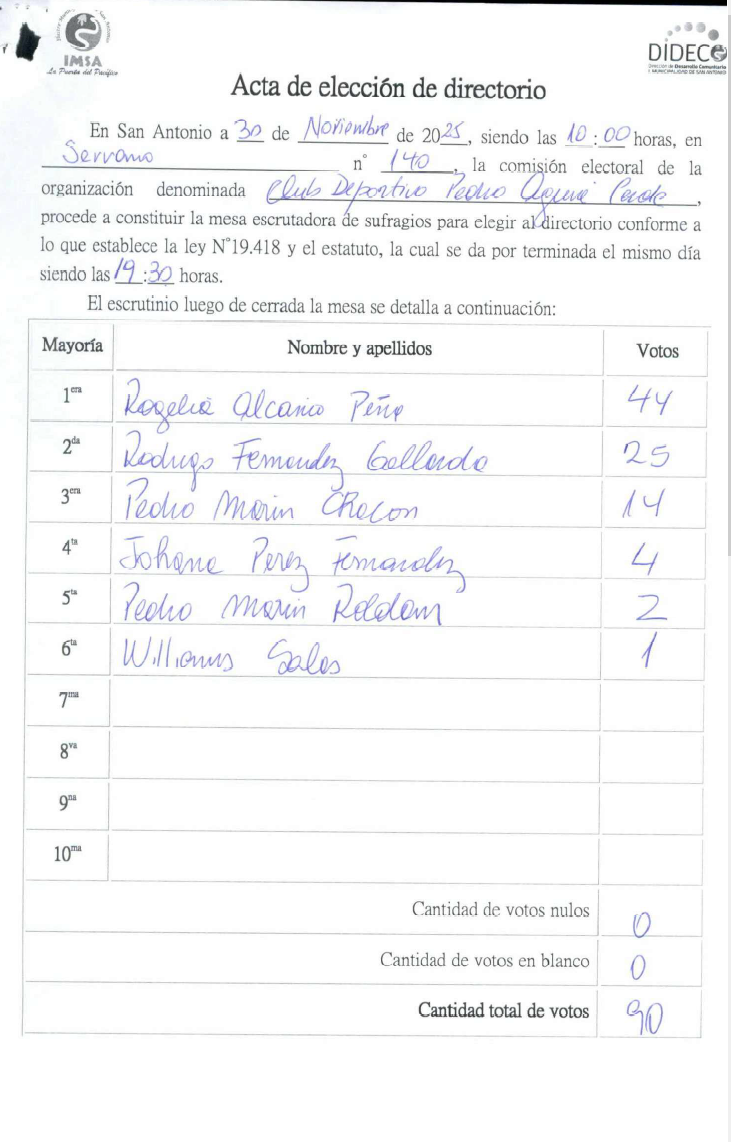 IMSA
La Puerta del Pacífico
DIDECO
Dirección de Desarrollo Comunitario
I. MUNICIPALIDAD DE SAN ANTONIO
Acta de elección de directorio
En San Antonio a 30 de Noviembre de 2025, siendo las 10:00 horas, en
Serrano n° 140, la comisión electoral de la
organización denominada Club Deportivo Pedro Aguirre Cerda,
procede a constituir la mesa escrutadora de sufragios para elegir al directorio conforme a
lo que establece la ley N°19.418 y el estatuto, la cual se da por terminada el mismo día
siendo las 19:30 horas.
El escrutinio luego de cerrada la mesa se detalla a continuación:
Mayoría Nombre y apellidos Votos
1era Rogelia Alcanio Peña 44
2da Rodrigo Fernandez Gallardo 25
3era Pedro Marin Chacon 14
4ta Johana Perez Fernandez 4
5ta Pedro Marin Roldam 2
6ta Willians Salas 1
7ma
8va
9na
10ma
Cantidad de votos nulos 0
Cantidad de votos en blanco 0
Cantidad total de votos 90